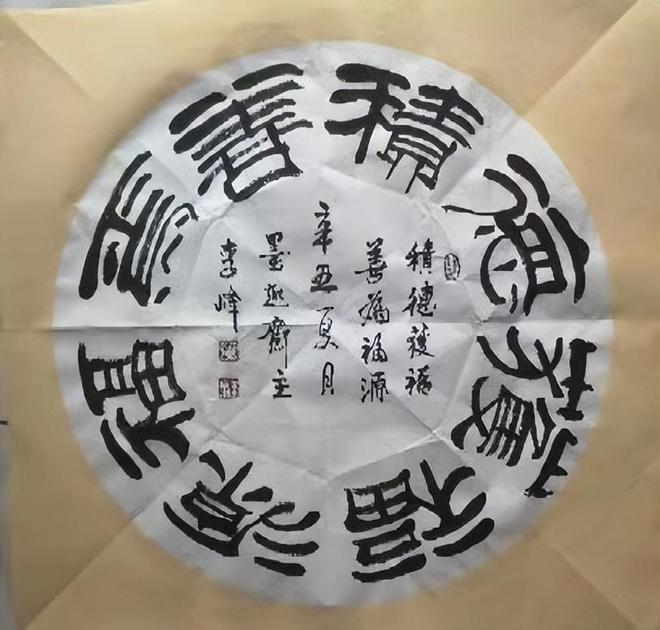 積德獲福
善為福源
積德獲福
善為福源
辛丑夏月
墨趣齋主
李峰